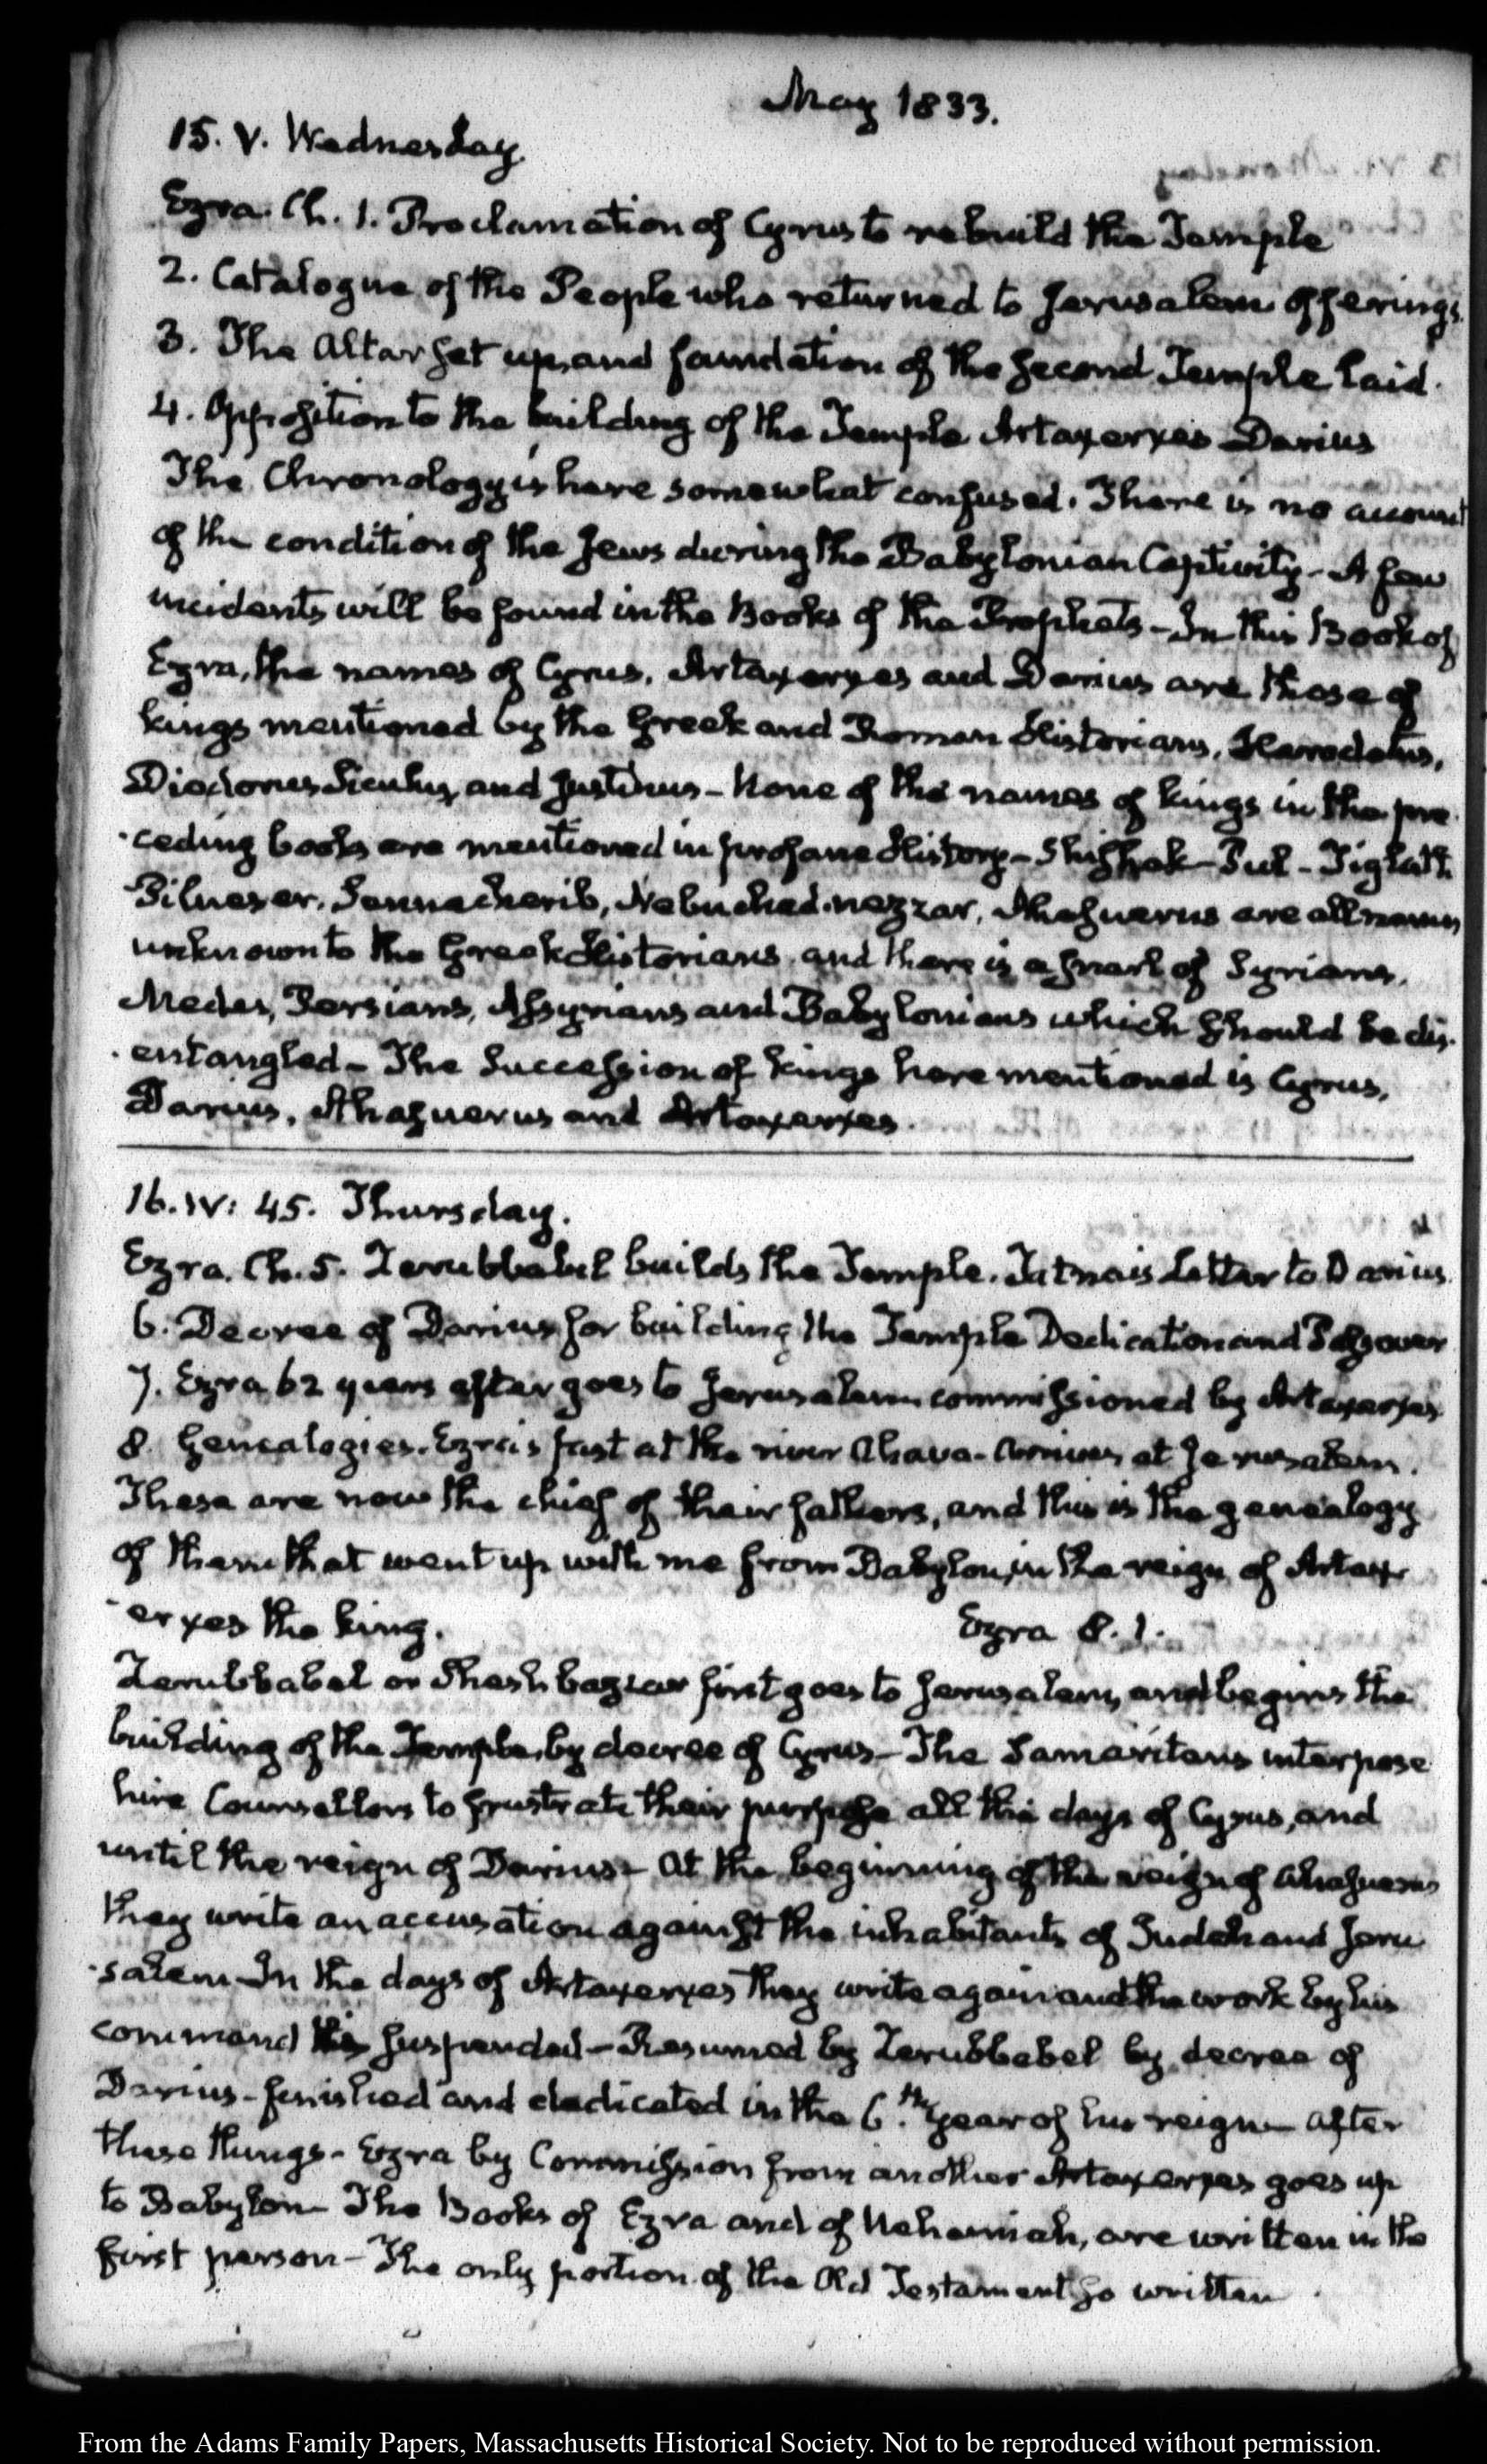 May 1833.
15. V. Wednesday.
Ezra. Ch. 1. Proclamation of Cyrus to rebuild the Temple
2. Catalogue of the People who returned to Jerusalem offerings.
3. The Altar set up, and foundation of the second Temple laid.
4. Opposition to the building of the Temple Artaxerxes Darius
The Chronology is here somewhat confused. There is no account
of the condition of the Jews during the Babylonian Captivity - A few
incidents will be found in the Books of the Prophets - In this Book of
Ezra, the names of Cyrus, Artaxerxes and Darius are those of
kings mentioned by the Greek and Roman Historians, Herodotus,
Diodorus Siculus, and Justinus - None of the names of kings in the pre
-ceding books are mentioned in profane History - Shishak - Pul - Tiglath
Pilneser, Sennacherib, Nebuchadnezzar, Ahasuerus are all names
unknown to the Greek Historians, and there is a snarl of Syrians,
Medes, Persians, Assyrians and Babylonians which should be dis-
-entangled - The succession of kings here mentioned is Cyrus,
Darius, Ahasuerus and Artaxerxes.
16. IV: 45. Thursday.
Ezra. Ch. 5. Zerubbabel builds the Temple. Tatnais Letter to Darius.
6. Decree of Darius for building the Temple Dedication and Passover
7. Ezra 62 years after goes to Jerusalem commissioned by Artaxerxes
8. Genealogies. Ezra's fast at the river Ahava - Arrives at Jerusalem.
These are now the chief of their fathers, and this is the genealogy
of them that went up with me from Babylon, in the reign of Artax-
-erxes the king. Ezra 8. 1.
Zerubbabel or Sheshbazzar first goes to Jerusalem, and begins the
building of the Temple, by decree of Cyrus - The Samaritans interpose
hire Counsellors to frustrate their purpose all the days of Cyrus, and
until the reign of Darius - At the beginning of the reign of Ahasuerus
they write an accusation against the inhabitants of Judah and Jeru
-salem - In the days of Artaxerxes they write again and the work by his
command is suspended - Resumed by Zerubbabel by decree of
Darius - finished and dedicated in the 6.th year of his reign - After
these things - Ezra by Commission from another Artaxerxes goes up
to Babylon - The Books of Ezra and of Nehemiah, are written in the
first person - The only portion of the Old Testament so written.
From the Adams Family Papers, Massachusetts Historical Society. Not to be reproduced without permission.